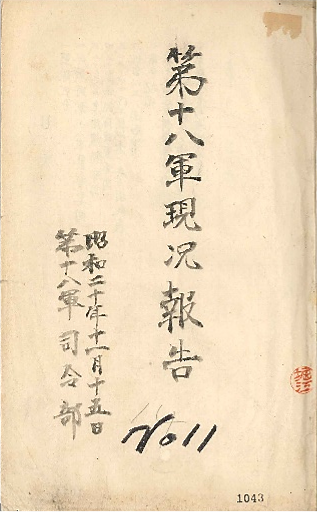 第十八軍現况報告
昭和二十年十一月十五日
第十八軍司令部
No 11
堀江
1043